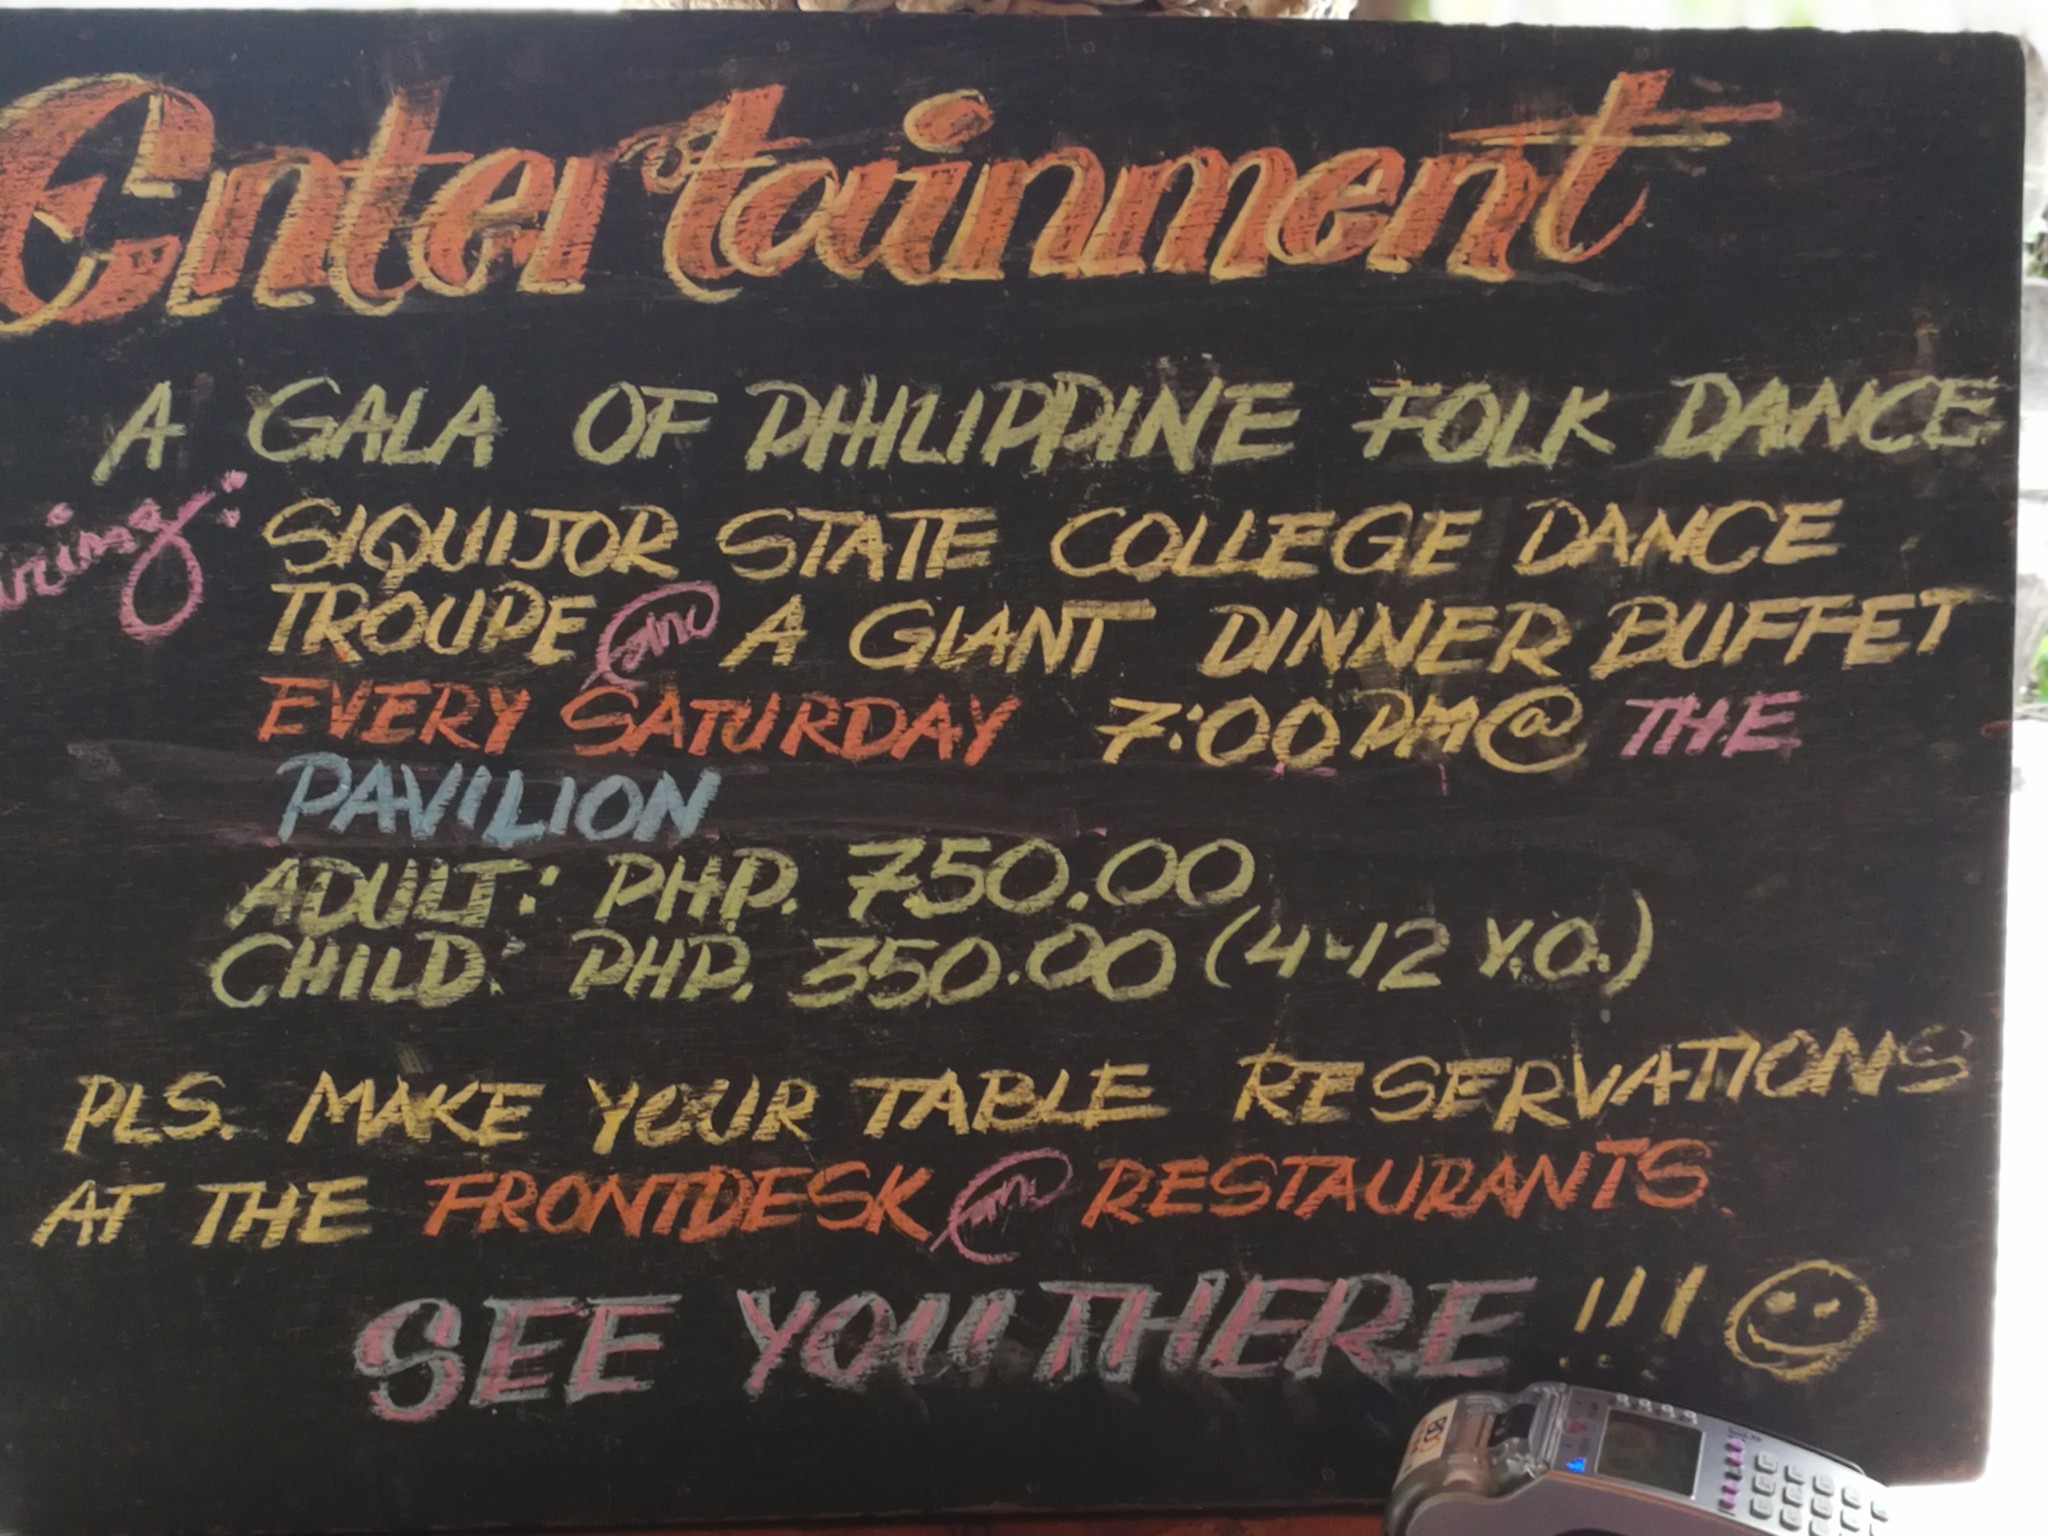 Entertainment
A GALA OF PHILIPPINE FOLK DANCE
uring: SIQUIJOR STATE COLLEGE DANCE
TROUPE and A GIANT DINNER BUFFET
EVERY SATURDAY 7:00PM@ THE
PAVILION
ADULT: PHP. 750.00
CHILD: PHP. 350.00 (4-12 Y.O.)
PLS. MAKE YOUR TABLE RESERVATIONS
AT THE FRONTDESK and RESTAURANTS
SEE YOU THERE !!!